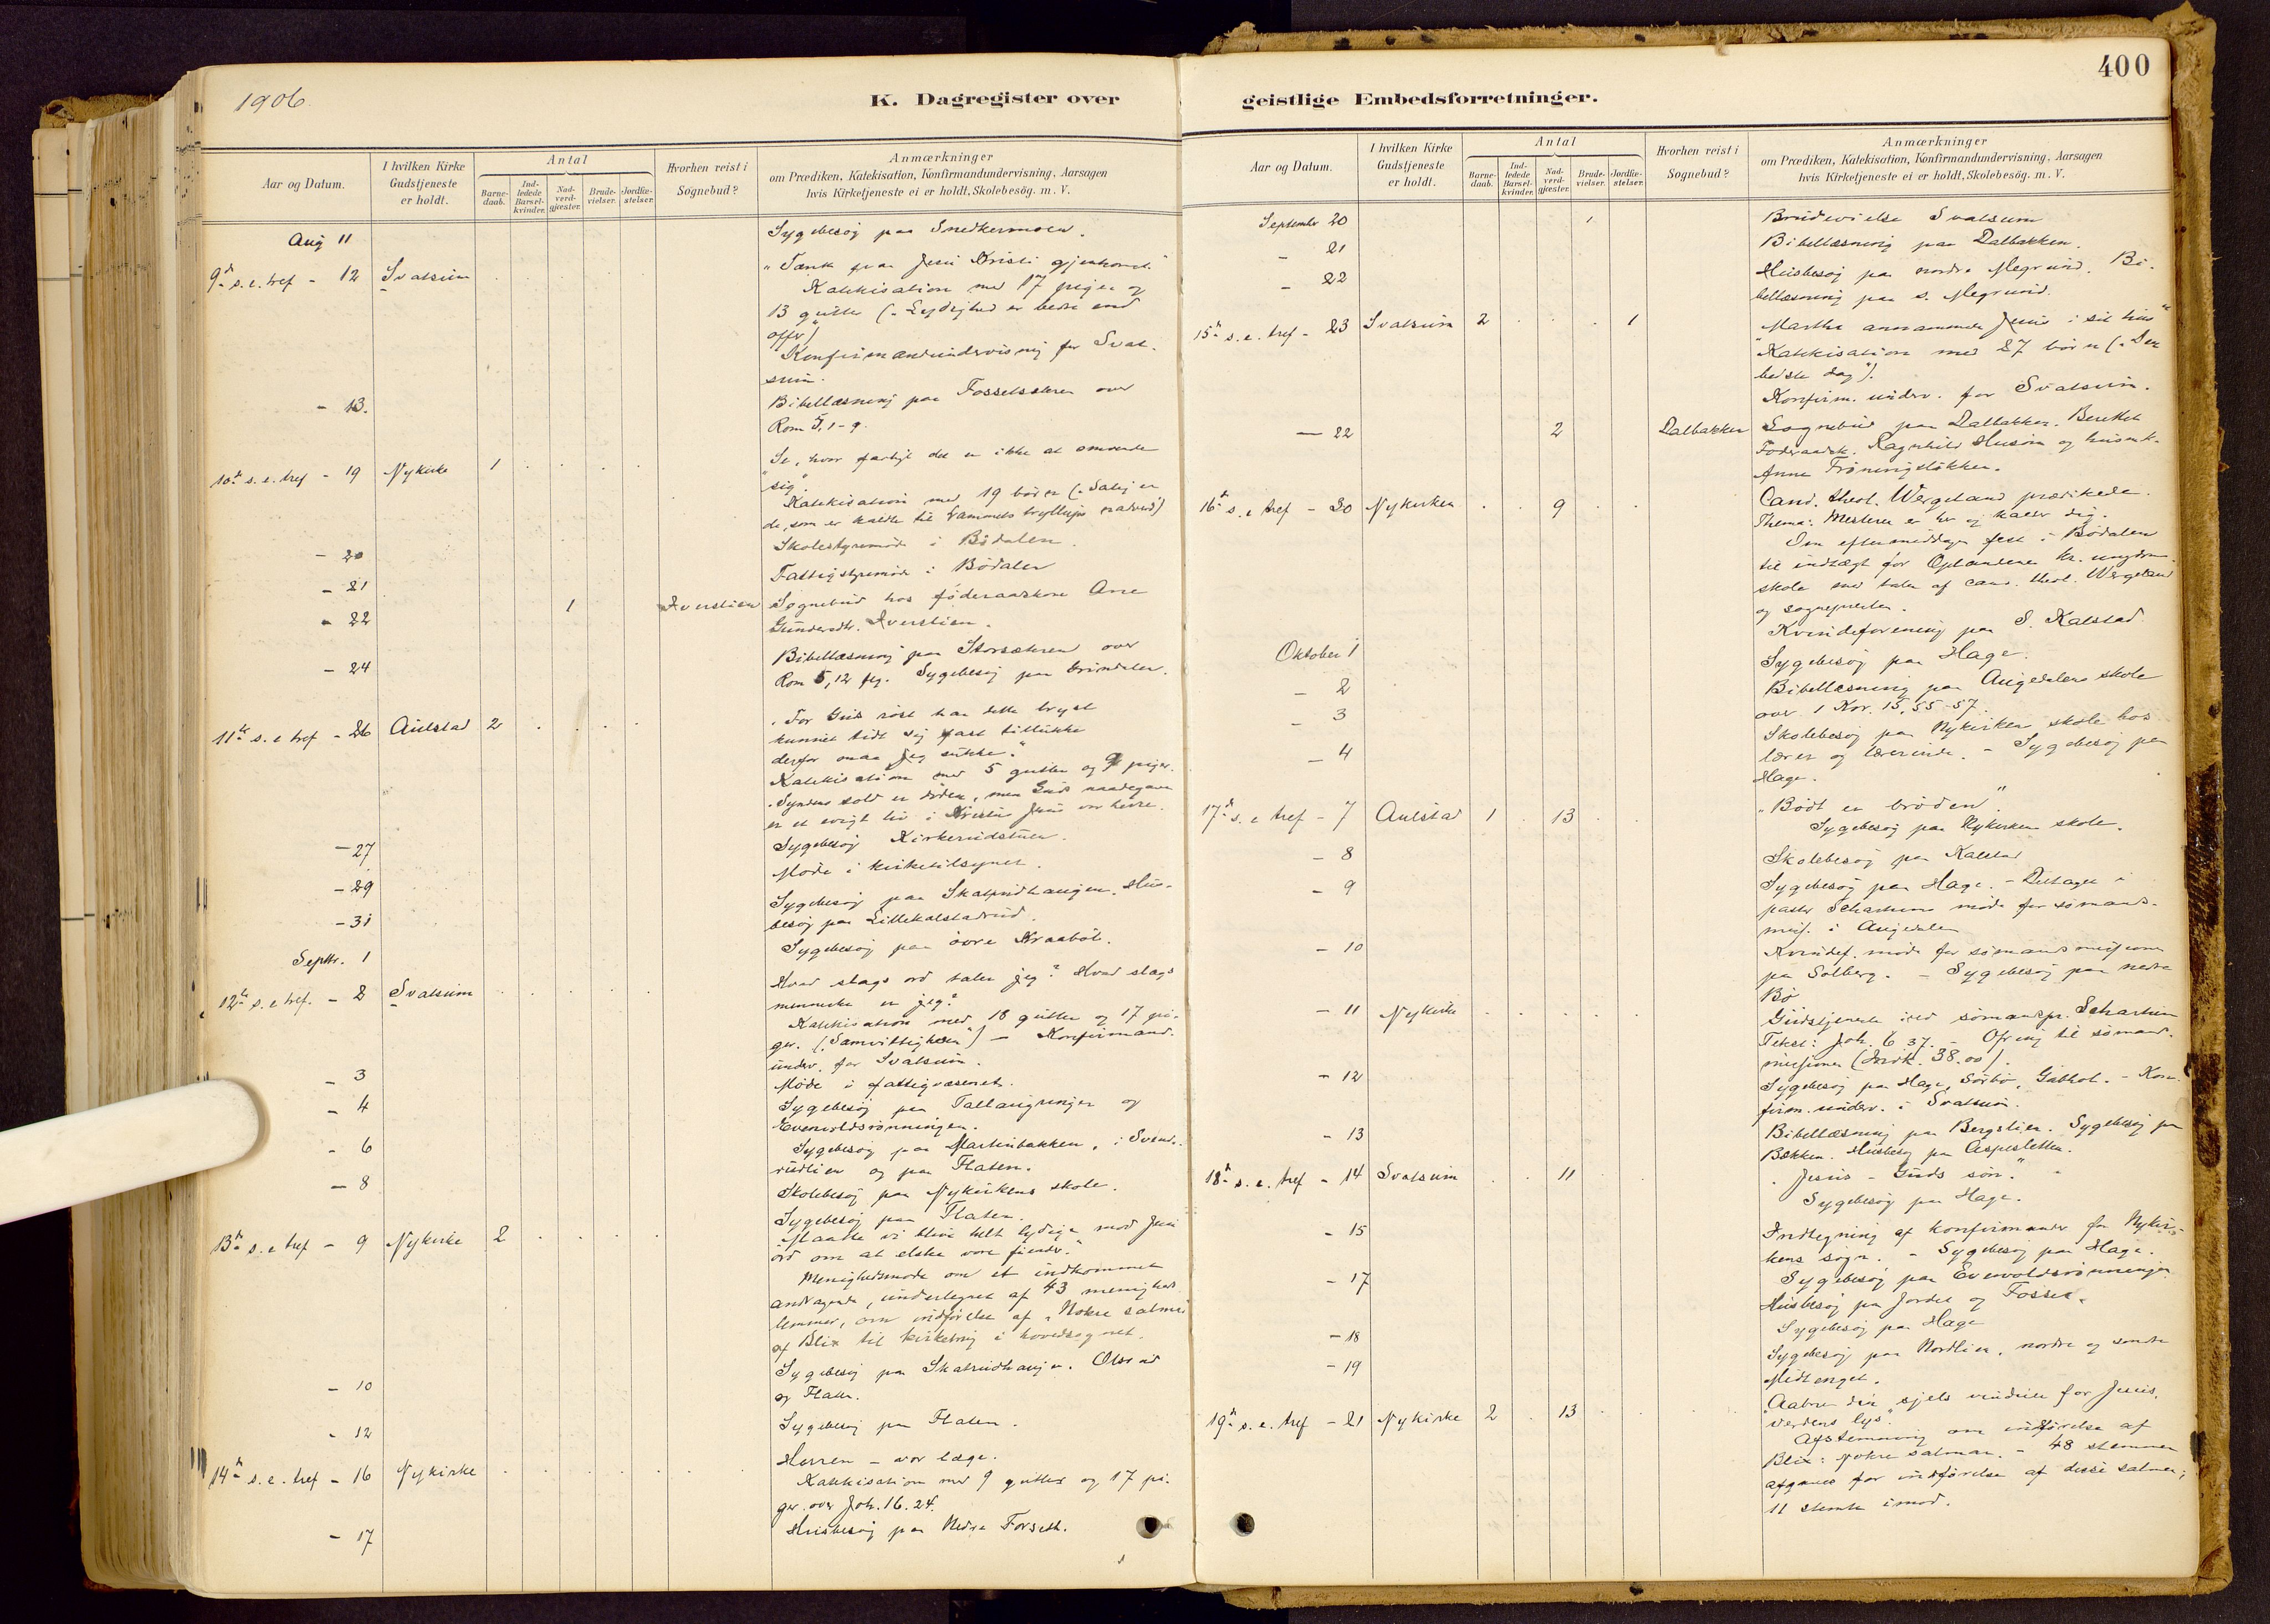 1906.
K. Dagregister over
Aar og Datum.
I hvilken Kirke Gudstjeneste er holdt.
Antal
Barne-daab.
Ind-ledede Barsel-kvinder.
Nad-verd-gjæster.
Brude-vielser.
Jordfæ-stelser.
Hvorhen reist i Sognebud?
Anmærkninger
om Prædiken, Katekisation, Konfirmandundervisning, Aarsagen
hvis Kirketjeneste ei er holdt, Skolebesög. m. V.
Aug 11 Sygebesøg paa Snedkermoen.
9de s. e. tref - 12 Svatsum "Tænk paa Jesu Kristi gjenkomst."
Katekisation med 17 piger og
13 gutter ("Lydighed er bedre end
offer")
Konfirmandundervisning for Svat-
sum.
- 13. Bibellæsning paa Fossetsæteren over
Rom 5, 1-9.
10de s. e. tref - 19 Nykirke 1 "Se, hvor farligt det er ikke at omvende
sig."
Katekisation med 19 børn ("Salig er
de, som er kaldte til Lammets bryllups nadverd")
- 20 Skolestyremøde i Bødalen.
- 21 Fattigstyremøde i Bødalen
- 22 1 Sognebud hos føderaadskone Ane
Gundersdtr.
- 24 Bibellæsning paa Storsæteren over
Rom 5, 12 flg. Sygebesøg paa
11te s. e. tref - 26 Aulstad 2 "For Guds røst har dette bryst
kunnet tidt sig fast tillukke
derfor maa jeg sukke."
Katekisation med 5 gutter og 9 piger.
"Syndens sold er døden, men Guds naadegave
er et evigt liv i Kristus Jesus vor herre.
- 27 Sygebesøg Kirkerudstuen.
- 29 Møde i kirketilsynet.
- 31 Sygebesøg paa Skalrudhaugen. Hus-
besøg paa Lillekalstadrud.
Septbr. 1 Sygebesøg paa øvre Kraabøl.
12te s. e. tref. - 2 Svatsum Hvad slags ord taler jeg? Hvad slags
menneske er jeg?
Katekisation med 18 gutter og 17 pi-
ger. ("Samvittigheden") - Konfirmand.
underv. for Svatsum.
- 3 Møde i fattigvæsenet.
- 4 Sygebesøg paa og
Evenvoldsrønningen.
- 6 Sygebesøg paa Martinbakken, i Svends-
rudlien og paa Flaten.
- 8 Skolebesøg paa Nykirkens skole.
Sygebesøg paa Flaten.
13de s. e. tref - 9 Nykirke 2 "Maatte vi blive helt lydige mod Jesu
ord om at elske vore fiender."
Menighedsmøde om et indkommet
andragende, underlegnet af 43 menigheds
lemmer, om indførelse af "Nokre salmar"
af Blix til kirkebrug i hovedsognet.
- 10 Sygebesøg paa Skalrudhaugen. Olsrud
og Flaten.
- 12 Sygebesøg paa Flaten.
14de s. e. tref - 16 Nykirke Herren - vor læge.
Katekisation med 9 gutter og 17 pi-
ger over Joh. 16. 24.
- 17 Husbesøg paa Nedre Forseth.
400
geistlige Embedsforretninger.
Aar og Datum.
I hvilken Kirke Gudstjeneste er holdt.
Antal
Barne-daab.
Ind-ledede Barsel-kvinder.
Nad-verd-gjæster.
Brude-vielser.
Jordfæ-stelser.
Hvorhen reist i Sognebud?
Anmærkninger
om Prædiken, Katekisation, Konfirmandundervisning, Aarsagen
hvis Kirketjeneste ei er holdt, Skolebesög. m. V.
September 20 1 Brudevielse Svatsum
- 21 Bibellæsning paa Dalbakken.
- 22 Husbesøg paa nordre Megrund. Bi-
bellæsning paa s. Megrund.
15de s. e. tref - 23 Svatsum 2 1 "Martha annammede Jesus i sit hus"
Katekisation med 27 børn ("Den
bedste dag").
Konfirm. underv. for Svatsum.
- 22 2 Dalbakken Sognebud paa Dalbakken. Berettet
Føderaadsk. Ragnhild Husom og husmk.
Anne
16de s. e tref - 30 Nykirken 9 Cand. theol. Wergeland prædikede.
Thema: Mesteren er her og kalder dig.
Om eftermiddagen fest i Bødalen
til indtægt for Oplandenes kr. ungdoms-
skole med taler af cand. theol. Wergeland
og sognepresten.
Oktober 1 Kvindeforening paa S. Kalstad.
- 2 Sygebesøg paa Hage.
- 3 Bibellæsning paa Augedalens skole
over 1 Kor. 15, 55-57.
- 4 Skolebesøg paa Nykirken skole hos
lærer og lærerinde. - Sygebesøg paa
Hage.
17de s. e tref - 7 Aulstad 1 13 "Bødt er brøden".
Sygebesøg paa Nykirken skole.
- 8 Skolebesøg paa Kalstad
- 9 Sygebesøg paa Hage. - Deltaget i
pastor Scharlums møde for sømands-
mis. i Augedalen
- 10 Kvindef. møde for sømandsmissionen
paa Solberg. - Sygebesøg paa nedre
Bø
- 11 Nykirke Gudstjeneste ved sømandspr. Scharlum
Tekst: Joh. 6 37. - Ofring til sømands-
missionen (Indk. 38.00).
- 12 Sygebesøg paa Hage, Sørbø, - Kon-
firm. underv. i Svatsum.
- 13 Bibellæsning paa Bergslien. Sygebesøg paa
Bakken. Husbesøg paa Aspesletten.
18de s. e. tref - 14 Svatsum 11 "Jesus - Guds søn."
Sygebesøg paa Hage.
- 15 Indtegning af konfirmander for Nykir-
kens sogn. - Sygebesøg paa Hage.
- 17 Sygebesøg paa Evenvoldsrønningen.
Husbesøg paa Jordet og Fosset.
- 18 Sygebesøg paa Hage
- 19 Sygebesøg paa Nordlien, nordre og søndre
Midtenget.
19de s. e. tref - 21 Nykirke 2 13 "Aabne din sjels vinduer for Jesus,
verdens lys."
Afstemning om indførelse af
Blix: Nokre salmar. - 48 stemmer
afgaves for indførelse af disse salmer;
11 stemte imod.